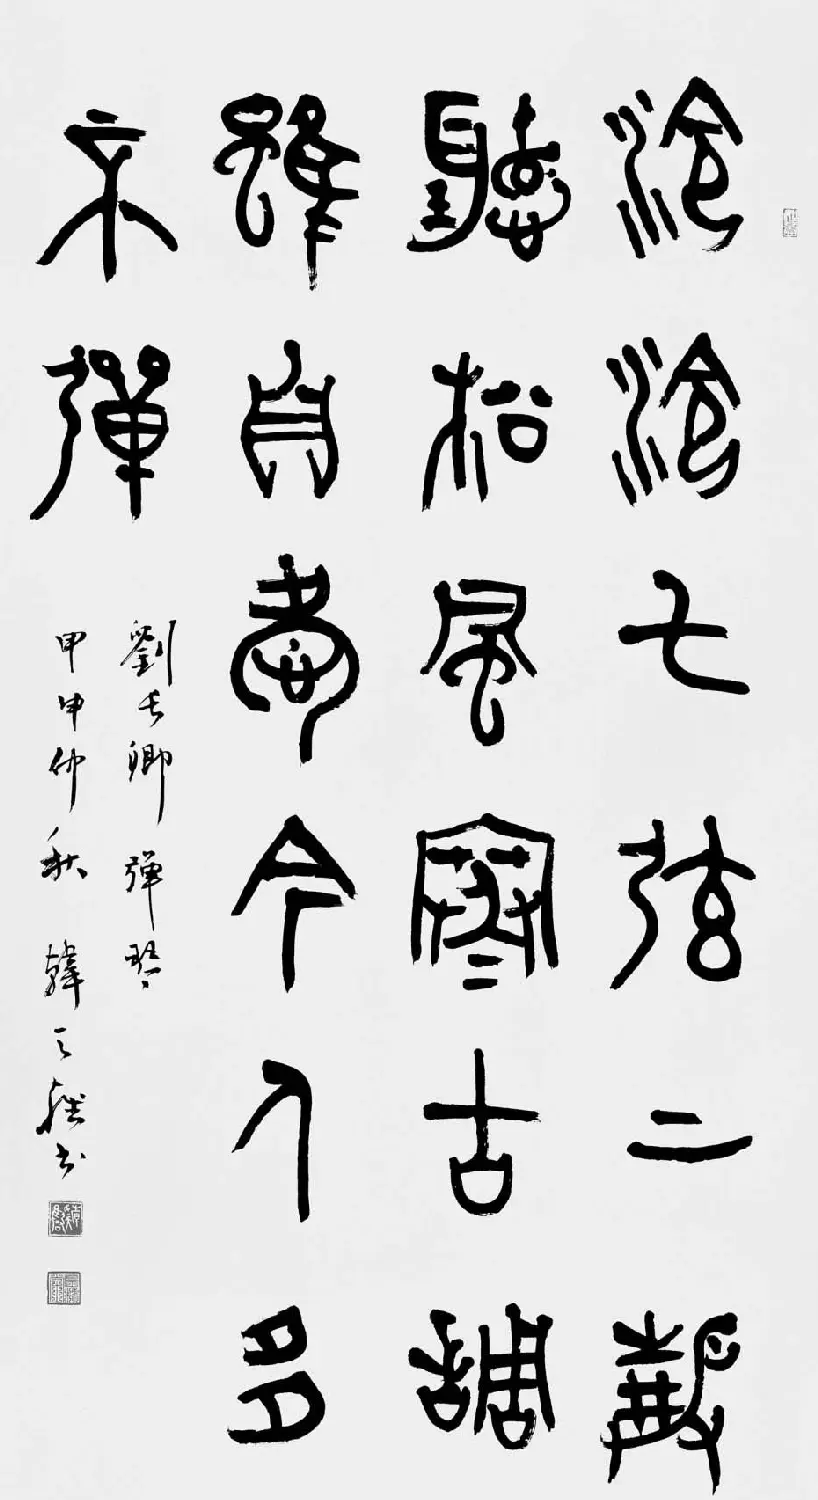 泠泠七弦上靜
聽松風寒古調
雖自愛今人多
不彈
劉長卿 彈琴
甲申仲秋 韓天衡書